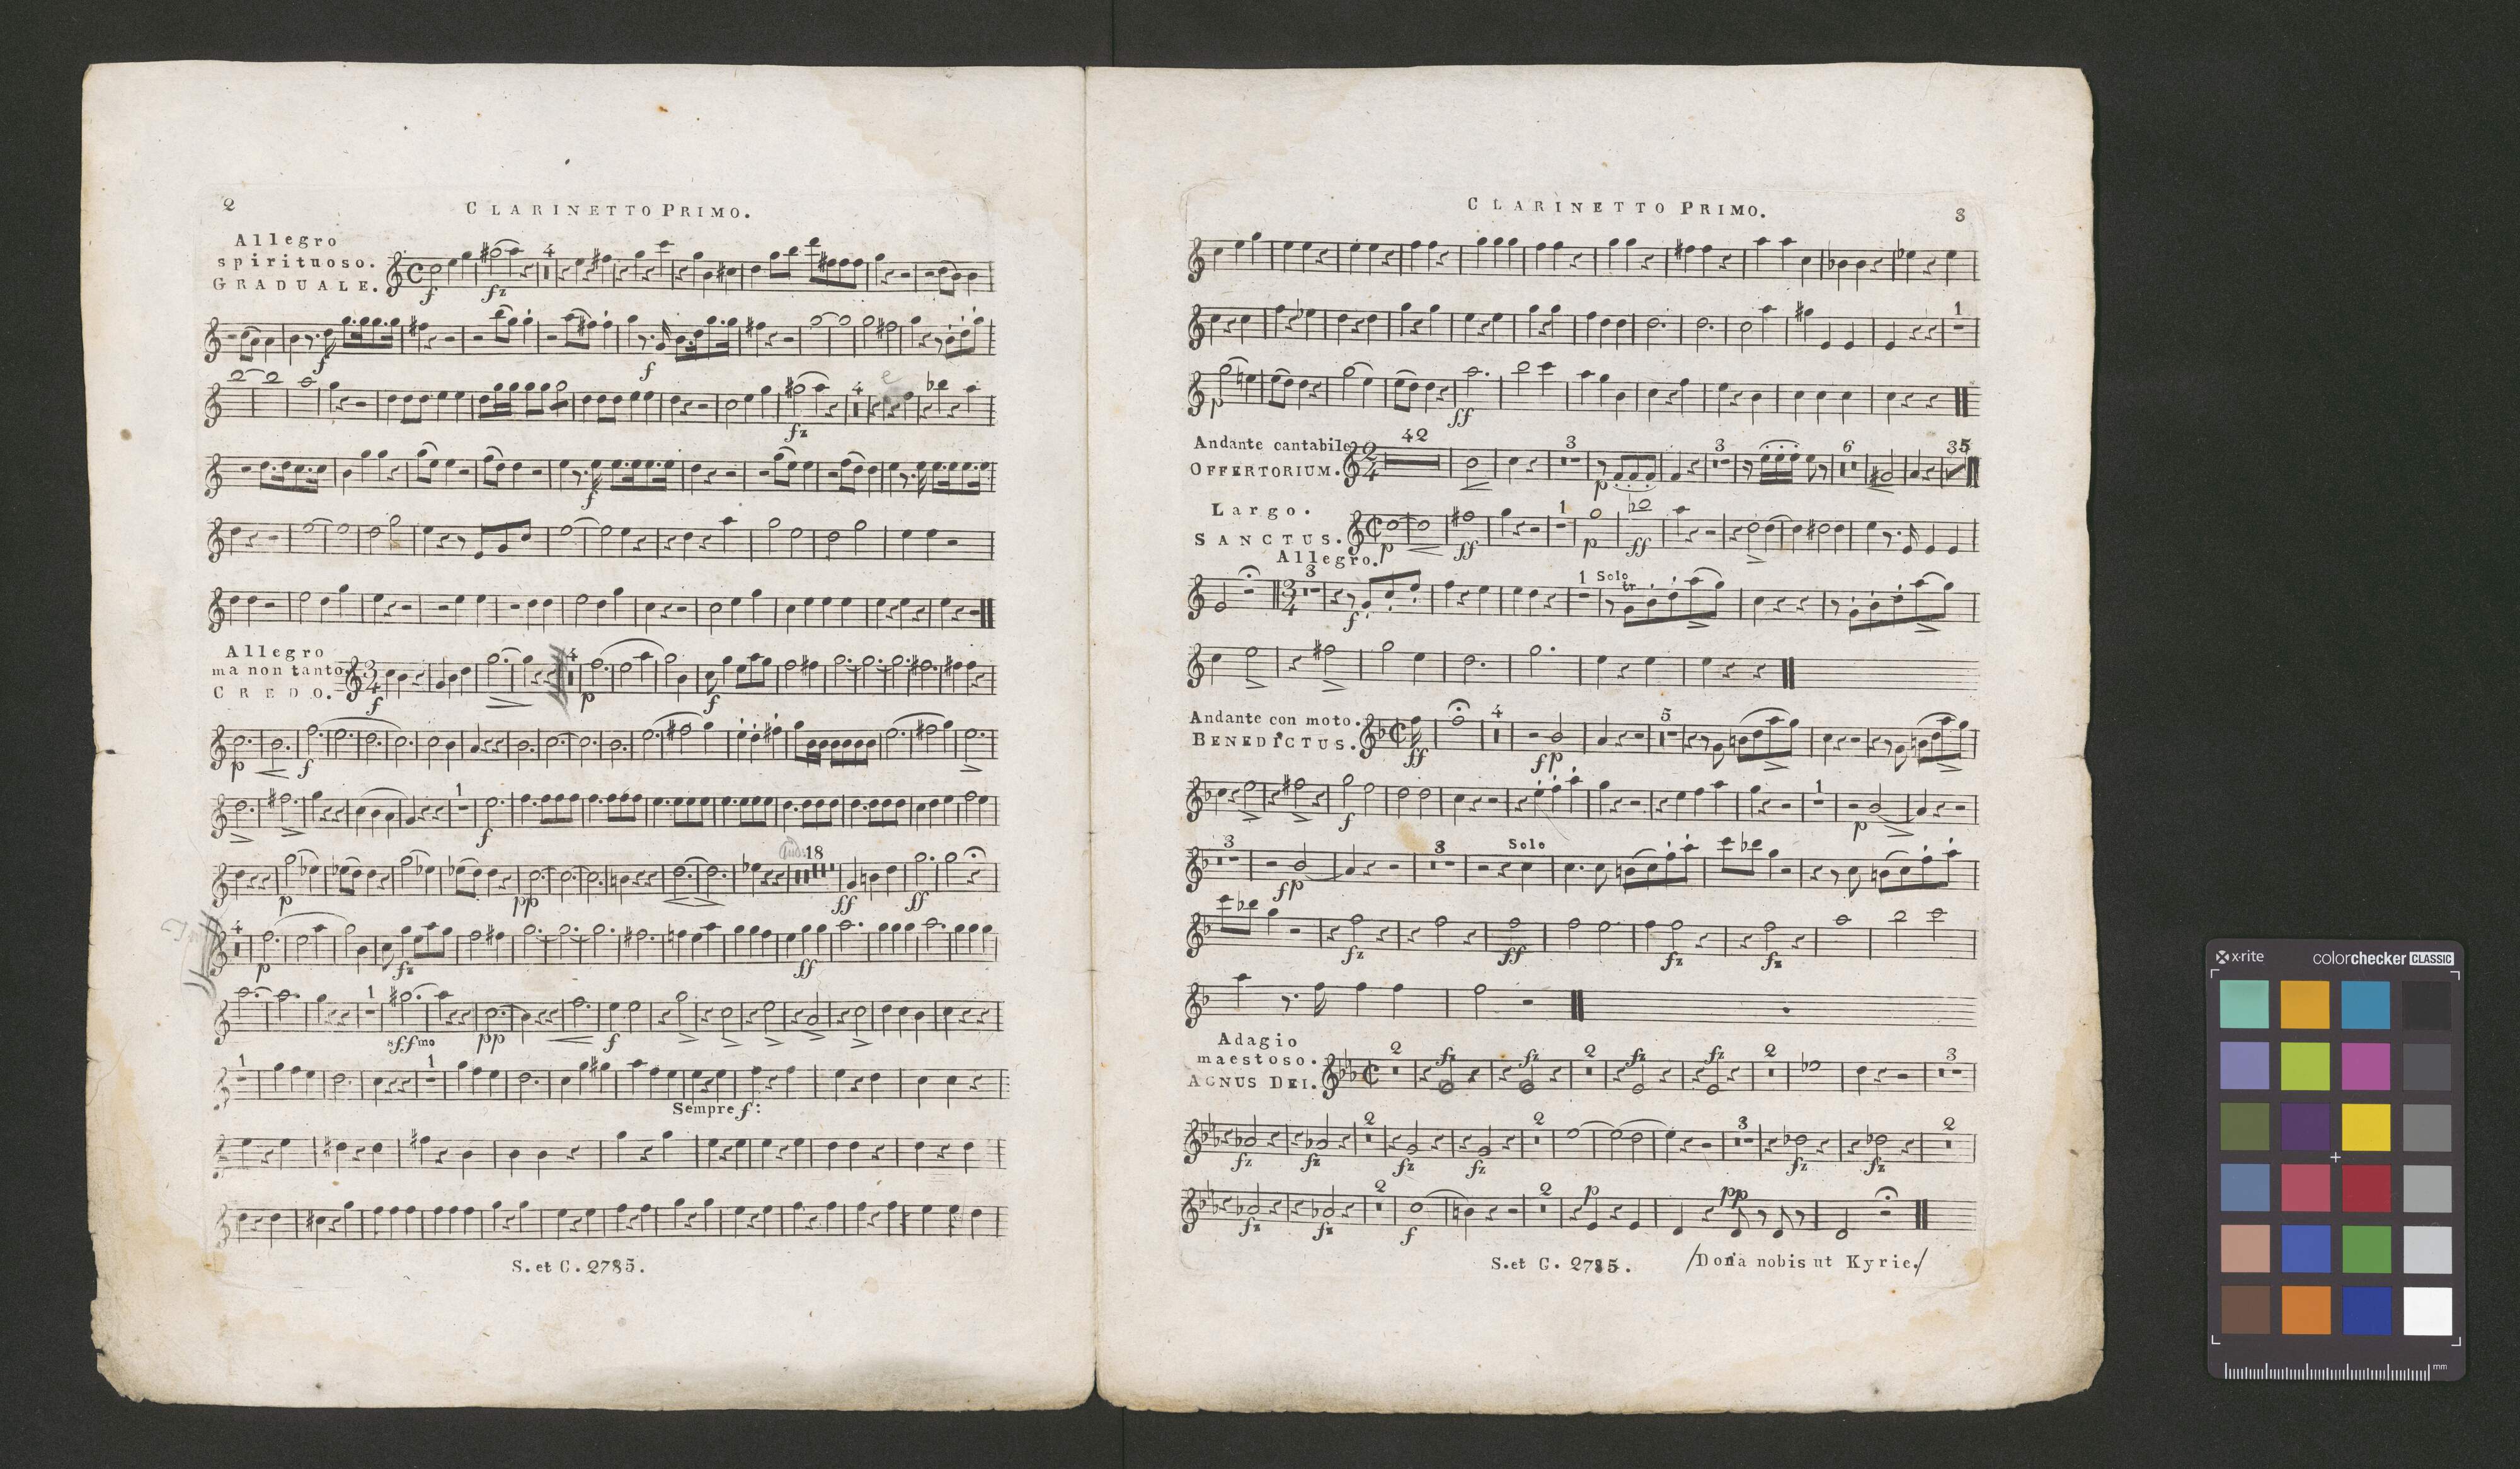 2
CLARINETTO PRIMO.
Allegro
spirituoso.
GRADUALE.
4
f
fz
f
f
4
e
fz
f
Allegro
ma non tanto.
CREDO.
4
f
p
f
p
f
1
f
18
p
pp
ff
ff
4
p
fz
ff
1
sffmo
pp
f
1
1
Sempre f:
S. et C. 2785.
CLARINETTO PRIMO.
3
1
p
ff
Andante cantabile
OFFERTORIUM.
2
4
42
3
3
6
35
p
Largo.
SANCTUS.
1
p
ff
p
ff
Allegro.
3
3
4
1
Solo
tr
f
Andante con moto.
BENEDICTUS.
4
5
ff
fp
1
f
p
3
3
Solo
fp
fz
ff
fz
fz
Adagio
maestoso.
AGNUS DEI.
2
fz
fz
2
fz
fz
2
3
2
2
3
2
fz
fz
fz
fz
fz
fz
2
2
p
pp
fz
fz
f
S. et C. 2785.
/Dona nobis ut Kyrie./
x-rite
colorchecker CLASSIC
mm